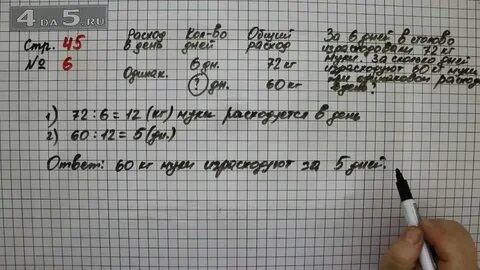 4DA5.RU
Стр. 45
№ 6
Расход в день
Кол-во дней
Общий расход
Одинак.
6 дн.
72 кг
? дн.
60 кг
За 6 дней в столово
израсходовали 72 кг
муки. За сколько дней
израсходуют 60 кг муки
при одинаковом расход
в день?
1) 72 : 6 = 12 (кг) муки расходуется в день
2) 60 : 12 = 5 (дн.)
Ответ: 60 кг муки израсходуют за 5 дней.